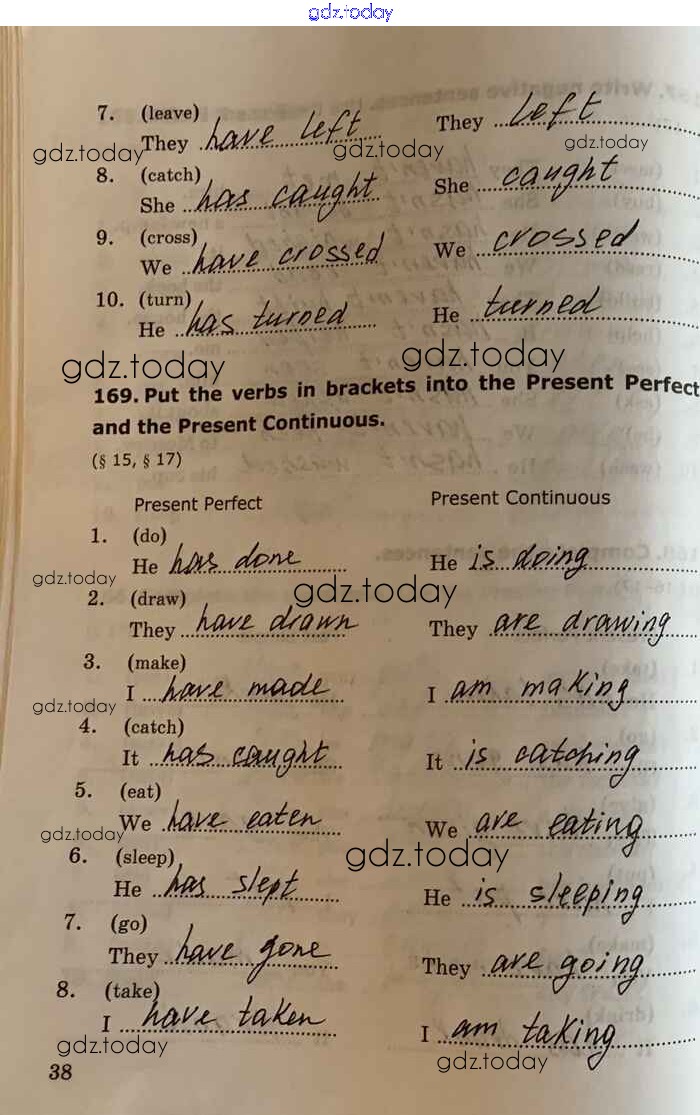 gdz.today
7. (leave)
They have left They left
gdz.today gdz.today gdz.today
8. (catch)
She has caught She caught
9. (cross)
We have crossed We crossed
10. (turn)
He has turned He turned
gdz.today gdz.today
169. Put the verbs in brackets into the Present Perfect
and the Present Continuous.
(§ 15, § 17)
Present Perfect Present Continuous
1. (do)
He has done He is doing
gdz.today gdz.today
2. (draw)
They have drawn They are drawing
3. (make)
I have made I am making
gdz.today
4. (catch)
It has caught It is catching
5. (eat)
We have eaten We are eating
gdz.today gdz.today
6. (sleep)
He has slept He is sleeping
7. (go)
They have gone They are going
8. (take)
I have taken I am taking
gdz.today gdz.today
38